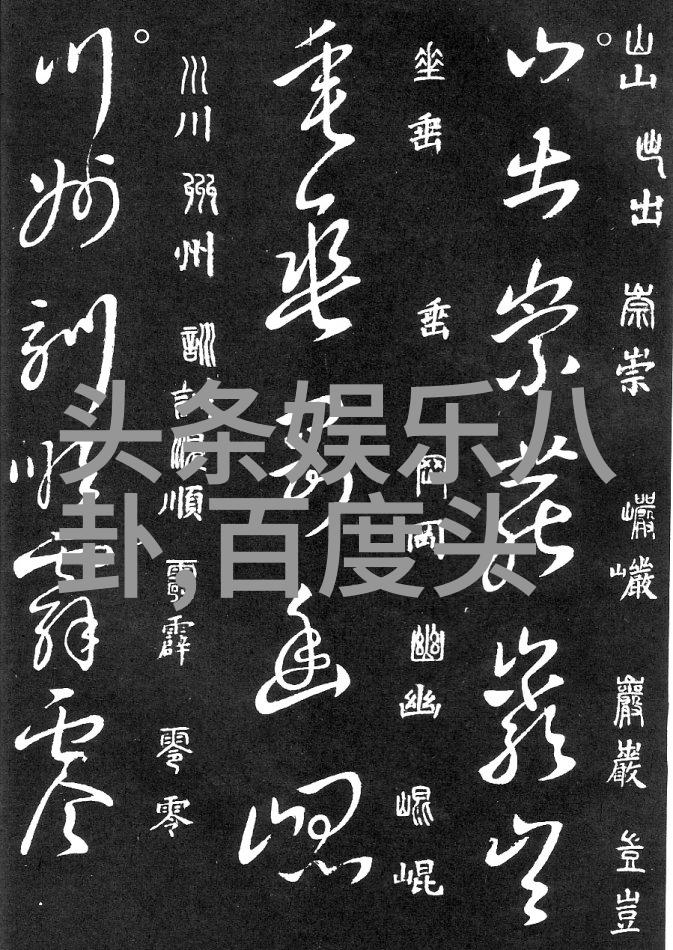 山山 出出 崇崇 巖巖 巖巖 豈豈
山出崇巖巖豈
垂垂 垂 岡岡 幽幽 崐崐
垂垂岡幽崐
川川 州州 訓訓 順順 霹霹 零零
川州訓順霹零
头条娱乐八
卦,百度头